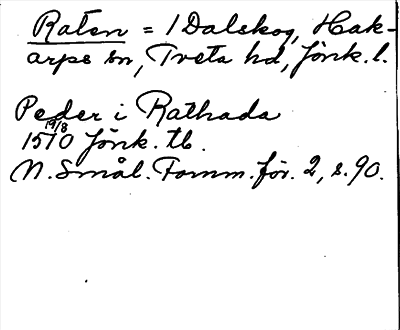 Raten = 1 Dalskog, Hak-
arps sn, Tveta hd, Jönk. l.
Peder i Rathada
19/8
1570 Jönk. tb.
N. Smål. Fornm. för. 2, s. 90.